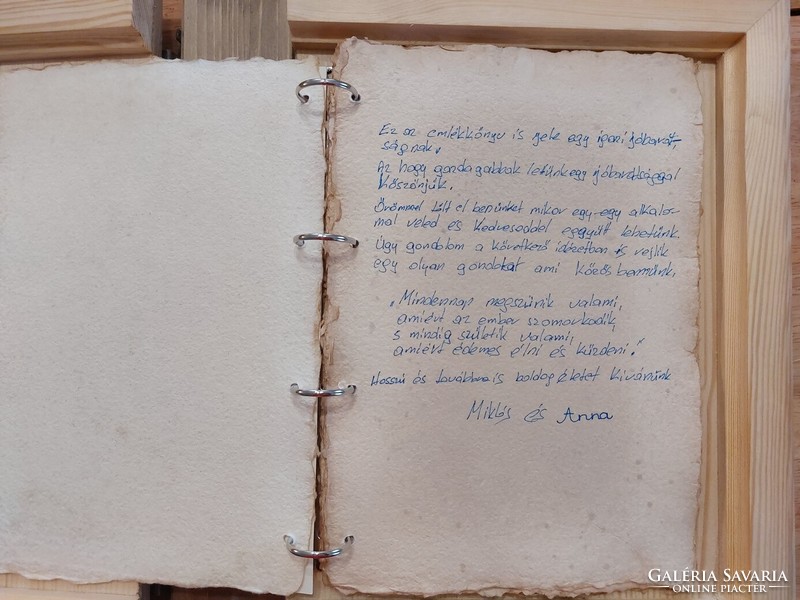 Ez az emlékkönyv is jele egy igazi jóbarát-
ságnak.
Az hogy gondagabbak lettünk egy jóbarátsággal
köszönjük.
Örömmel tölt el bennünket mikor egy-egy alkalom-
mal veled és kedveseddel együtt lehetünk.
Úgy gondolom a következő idézetben is rejlik
egy olyan gondolat ami közös bennünk.
„Mindennap megszűnik valami,
amiért az ember szomorkodik,
s mindig születik valami,
amiért érdemes élni és küzdeni."
Hosszú és továbbra is boldog életet kívánunk
Miklós és Anna
GALÉRIA SAVARIA
ONLINE PIACTÉR